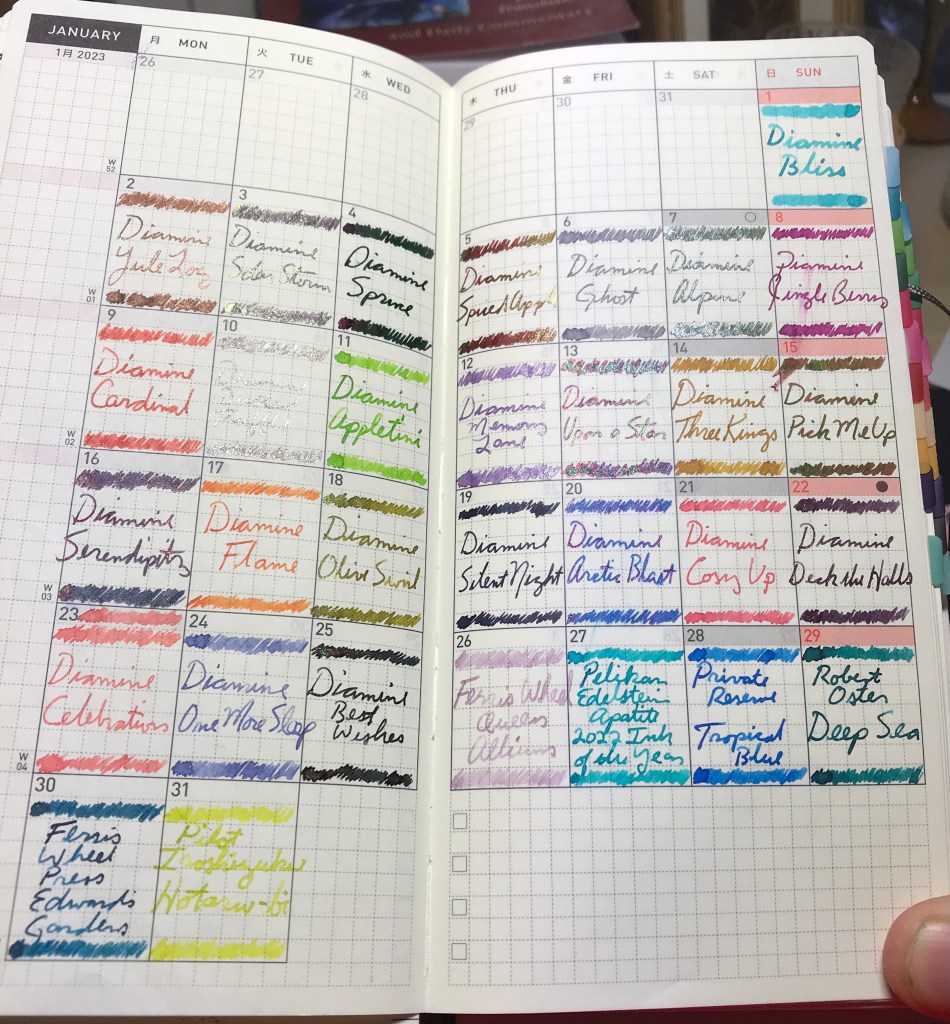 and Daily Commentary
JANUARY
1月 2023
月 MON
火 TUE
水 WED
木 THU
金 FRI
土 SAT
日 SUN
26
27
28
29
30
31
1
Diamine
Bliss
W
52
2
Diamine
Yule Log
3
Diamine
Solar Storm
4
Diamine
Spruce
5
Diamine
Spiced Apple
6
Diamine
Ghost
7
Diamine
Alpine
8
Diamine
Jingle Berry
W
01
9
Diamine
Cardinal
10
Diamine
11
Diamine
Appletini
12
Diamine
Memory
Lane
13
Diamine
Upon a Star
14
Diamine
Three Kings
15
Diamine
Pick Me Up
W
02
16
Diamine
Serendipity
17
Diamine
Flame
18
Diamine
Olive Swirl
19
Diamine
Silent Night
20
Diamine
Arctic Blast
21
Diamine
Cosy Up
22
Diamine
Deck the Halls
W
03
23
Diamine
Celebrations
24
Diamine
One More Sleep
25
Diamine
Best
Wishes
26
Ferris Wheel
Queens
27
Pelikan
Edelstein
Apatite
2022 Ink
of the Year
28
Private
Reserve
Tropical
Blue
29
Robert
Oster
Deep Sea
W
04
30
Ferris
Wheel
Press
Edwards
Gardens
31
Pilot
Iroshizuku
Hotaru-bi